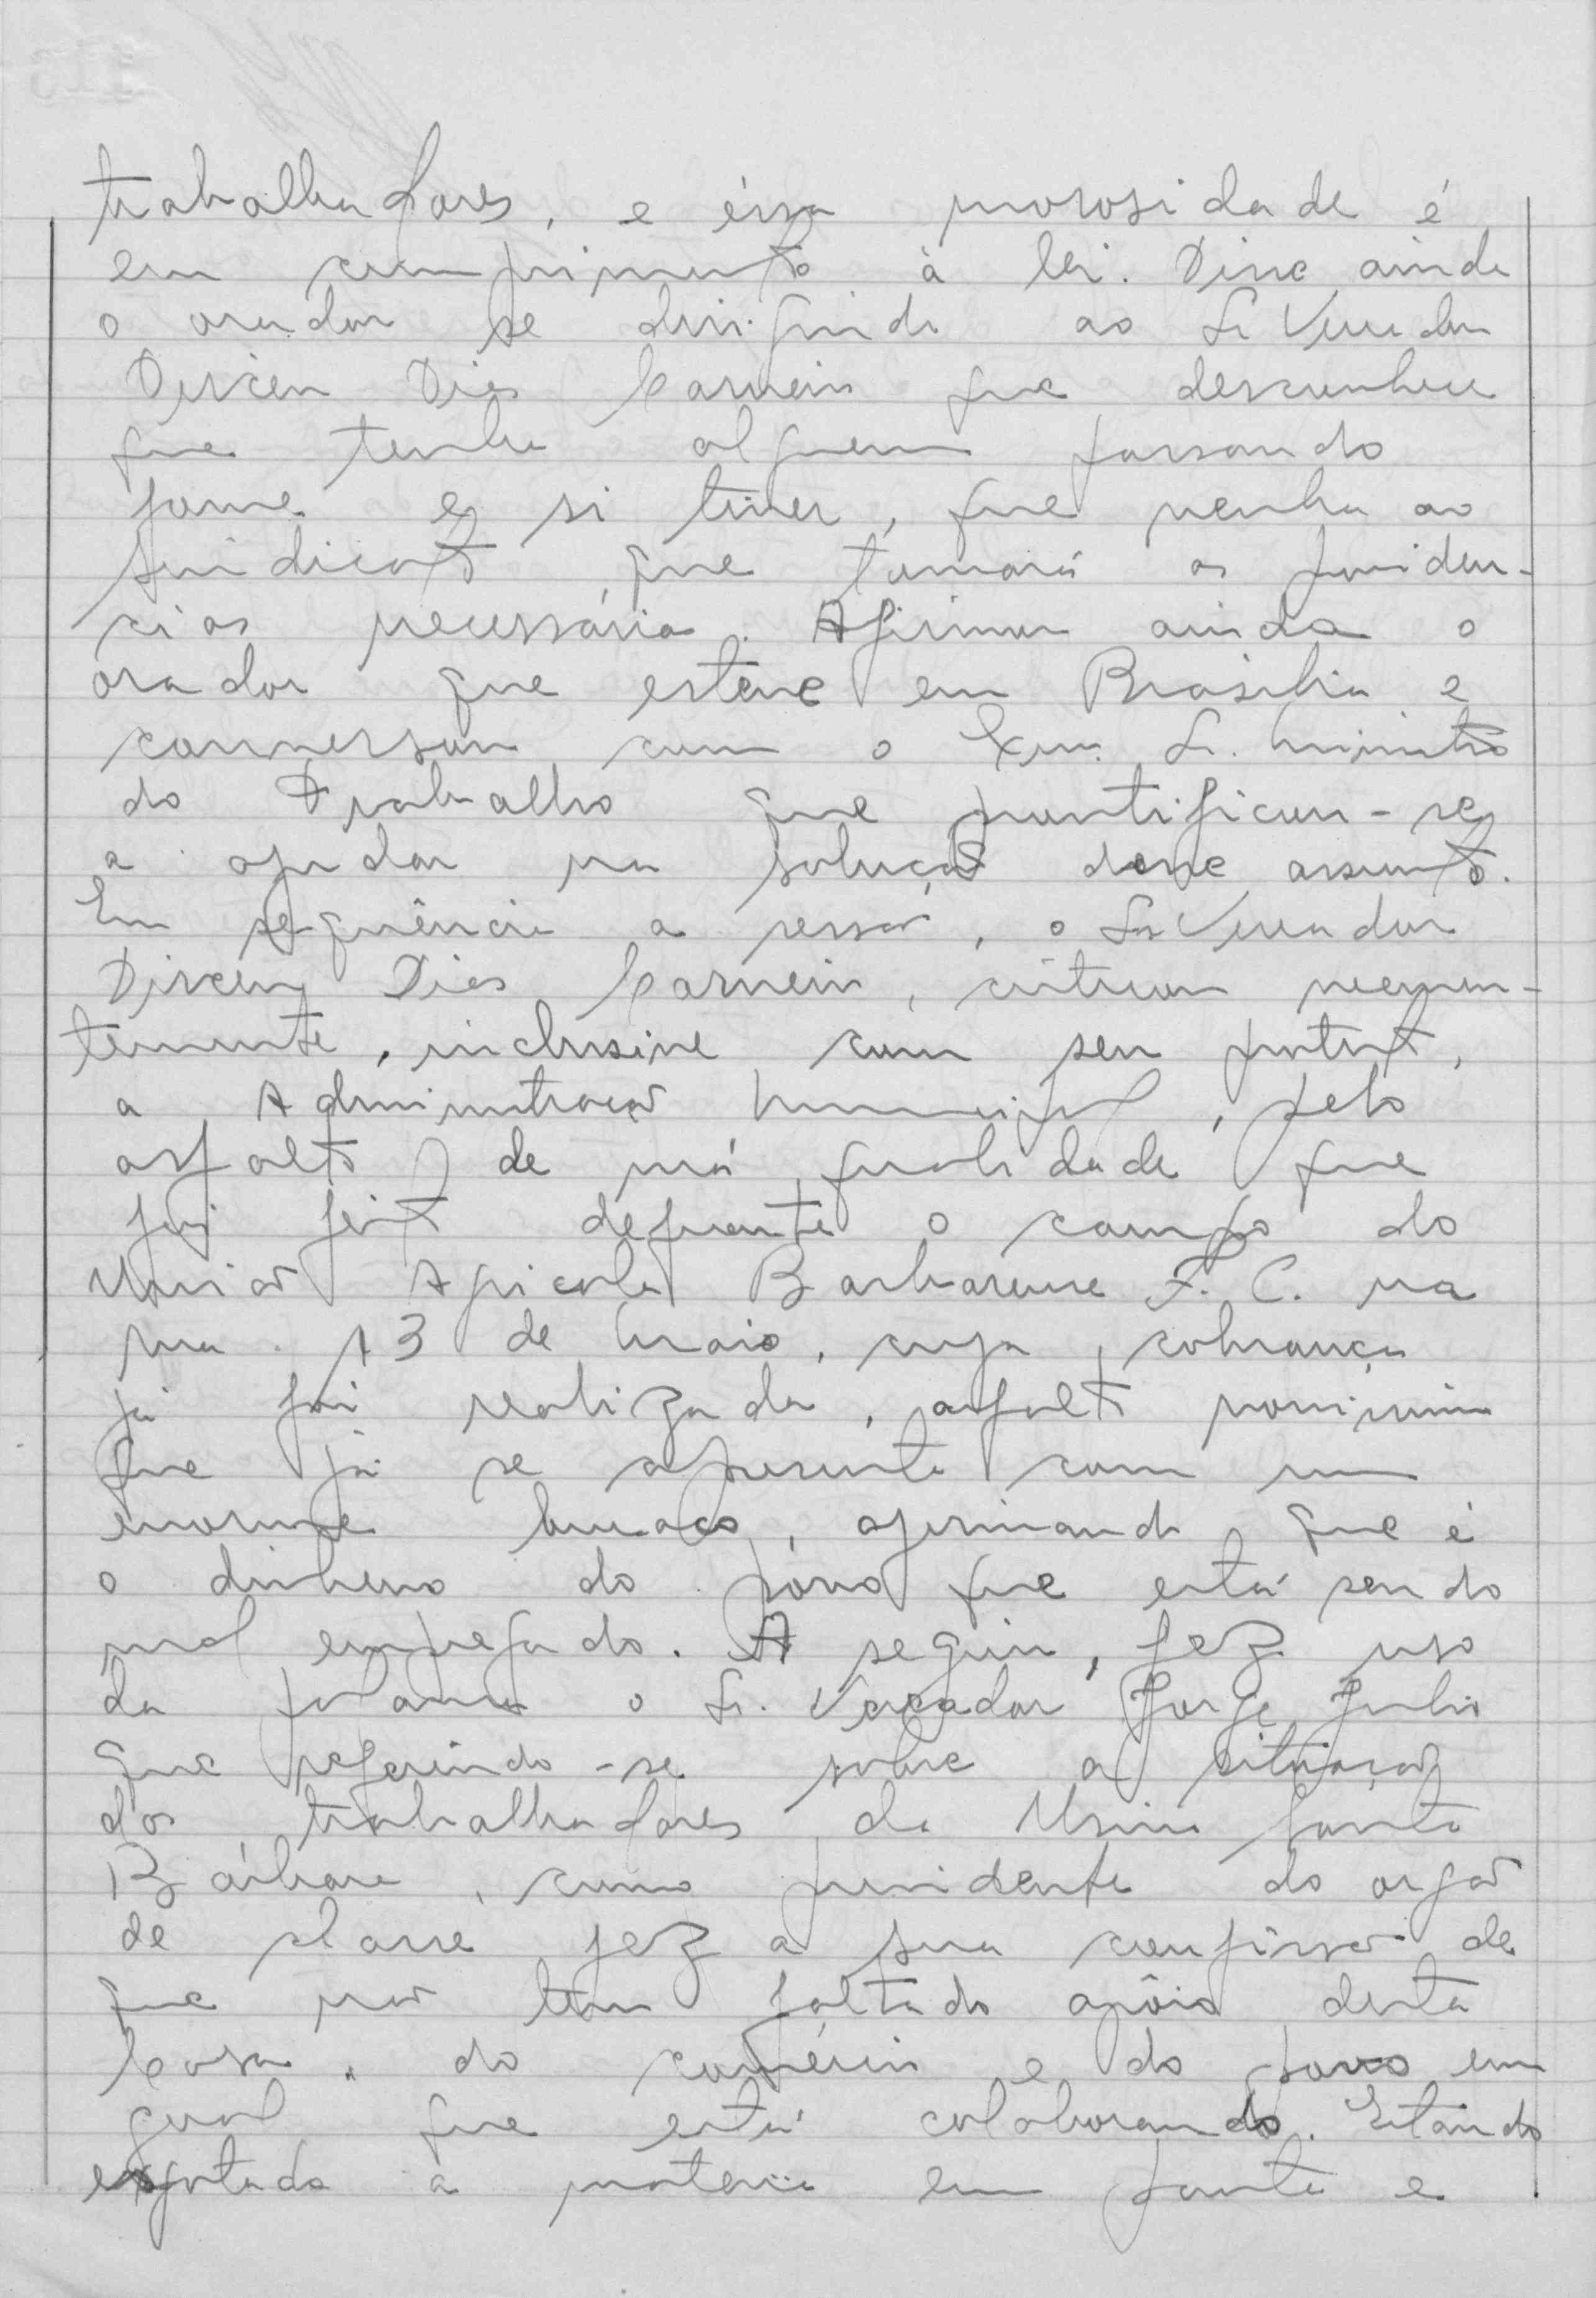 trabalhadores, e éssa morosidade é
em cumprimento à lei. Disse ainda
o orador se dirigindo ao Sr Vereador
Dirceu Dias Carneiro que desconhece
que tenha alguem passando
fome e si tiver, que venha ao
sindicato que tomará as providen-
cias necessária. Afirmou ainda o
orador que esteve em Brasilia e
conversou com o Exmo. Sr. Ministro
do Trabalho que prontificou-se
a ajudar na solução desse assunto.
Em sequência a sessão, o Sr Vereador
Dirceu Dias Carneiro, criticou veemen-
temente, inclusive com seu protesto,
a Administração Municipal, pelo
asfalto de má qualidade que
foi feito defronte o campo do
União Agricola Barbarense F. C. na
rua 13 de Maio, cuja cobrança
já foi realizada, asfalto novissimo
que já se apresenta com um
enorme buraco, afirmando que é
o dinheiro do povo que está sendo
mal empregado. A seguir, fez uso
da palavra o Sr. Vereador Jorge Julio
que referindo-se sobre a situação
dos trabalhadores da Usina Santa
Bárbara, como presidente do orgão
de classe fez a sua confissão de
que não tem faltado apôio desta
Casa, do comércio e do povo em
geral que está colaborando. Estando
esgotada a materia em pauta e